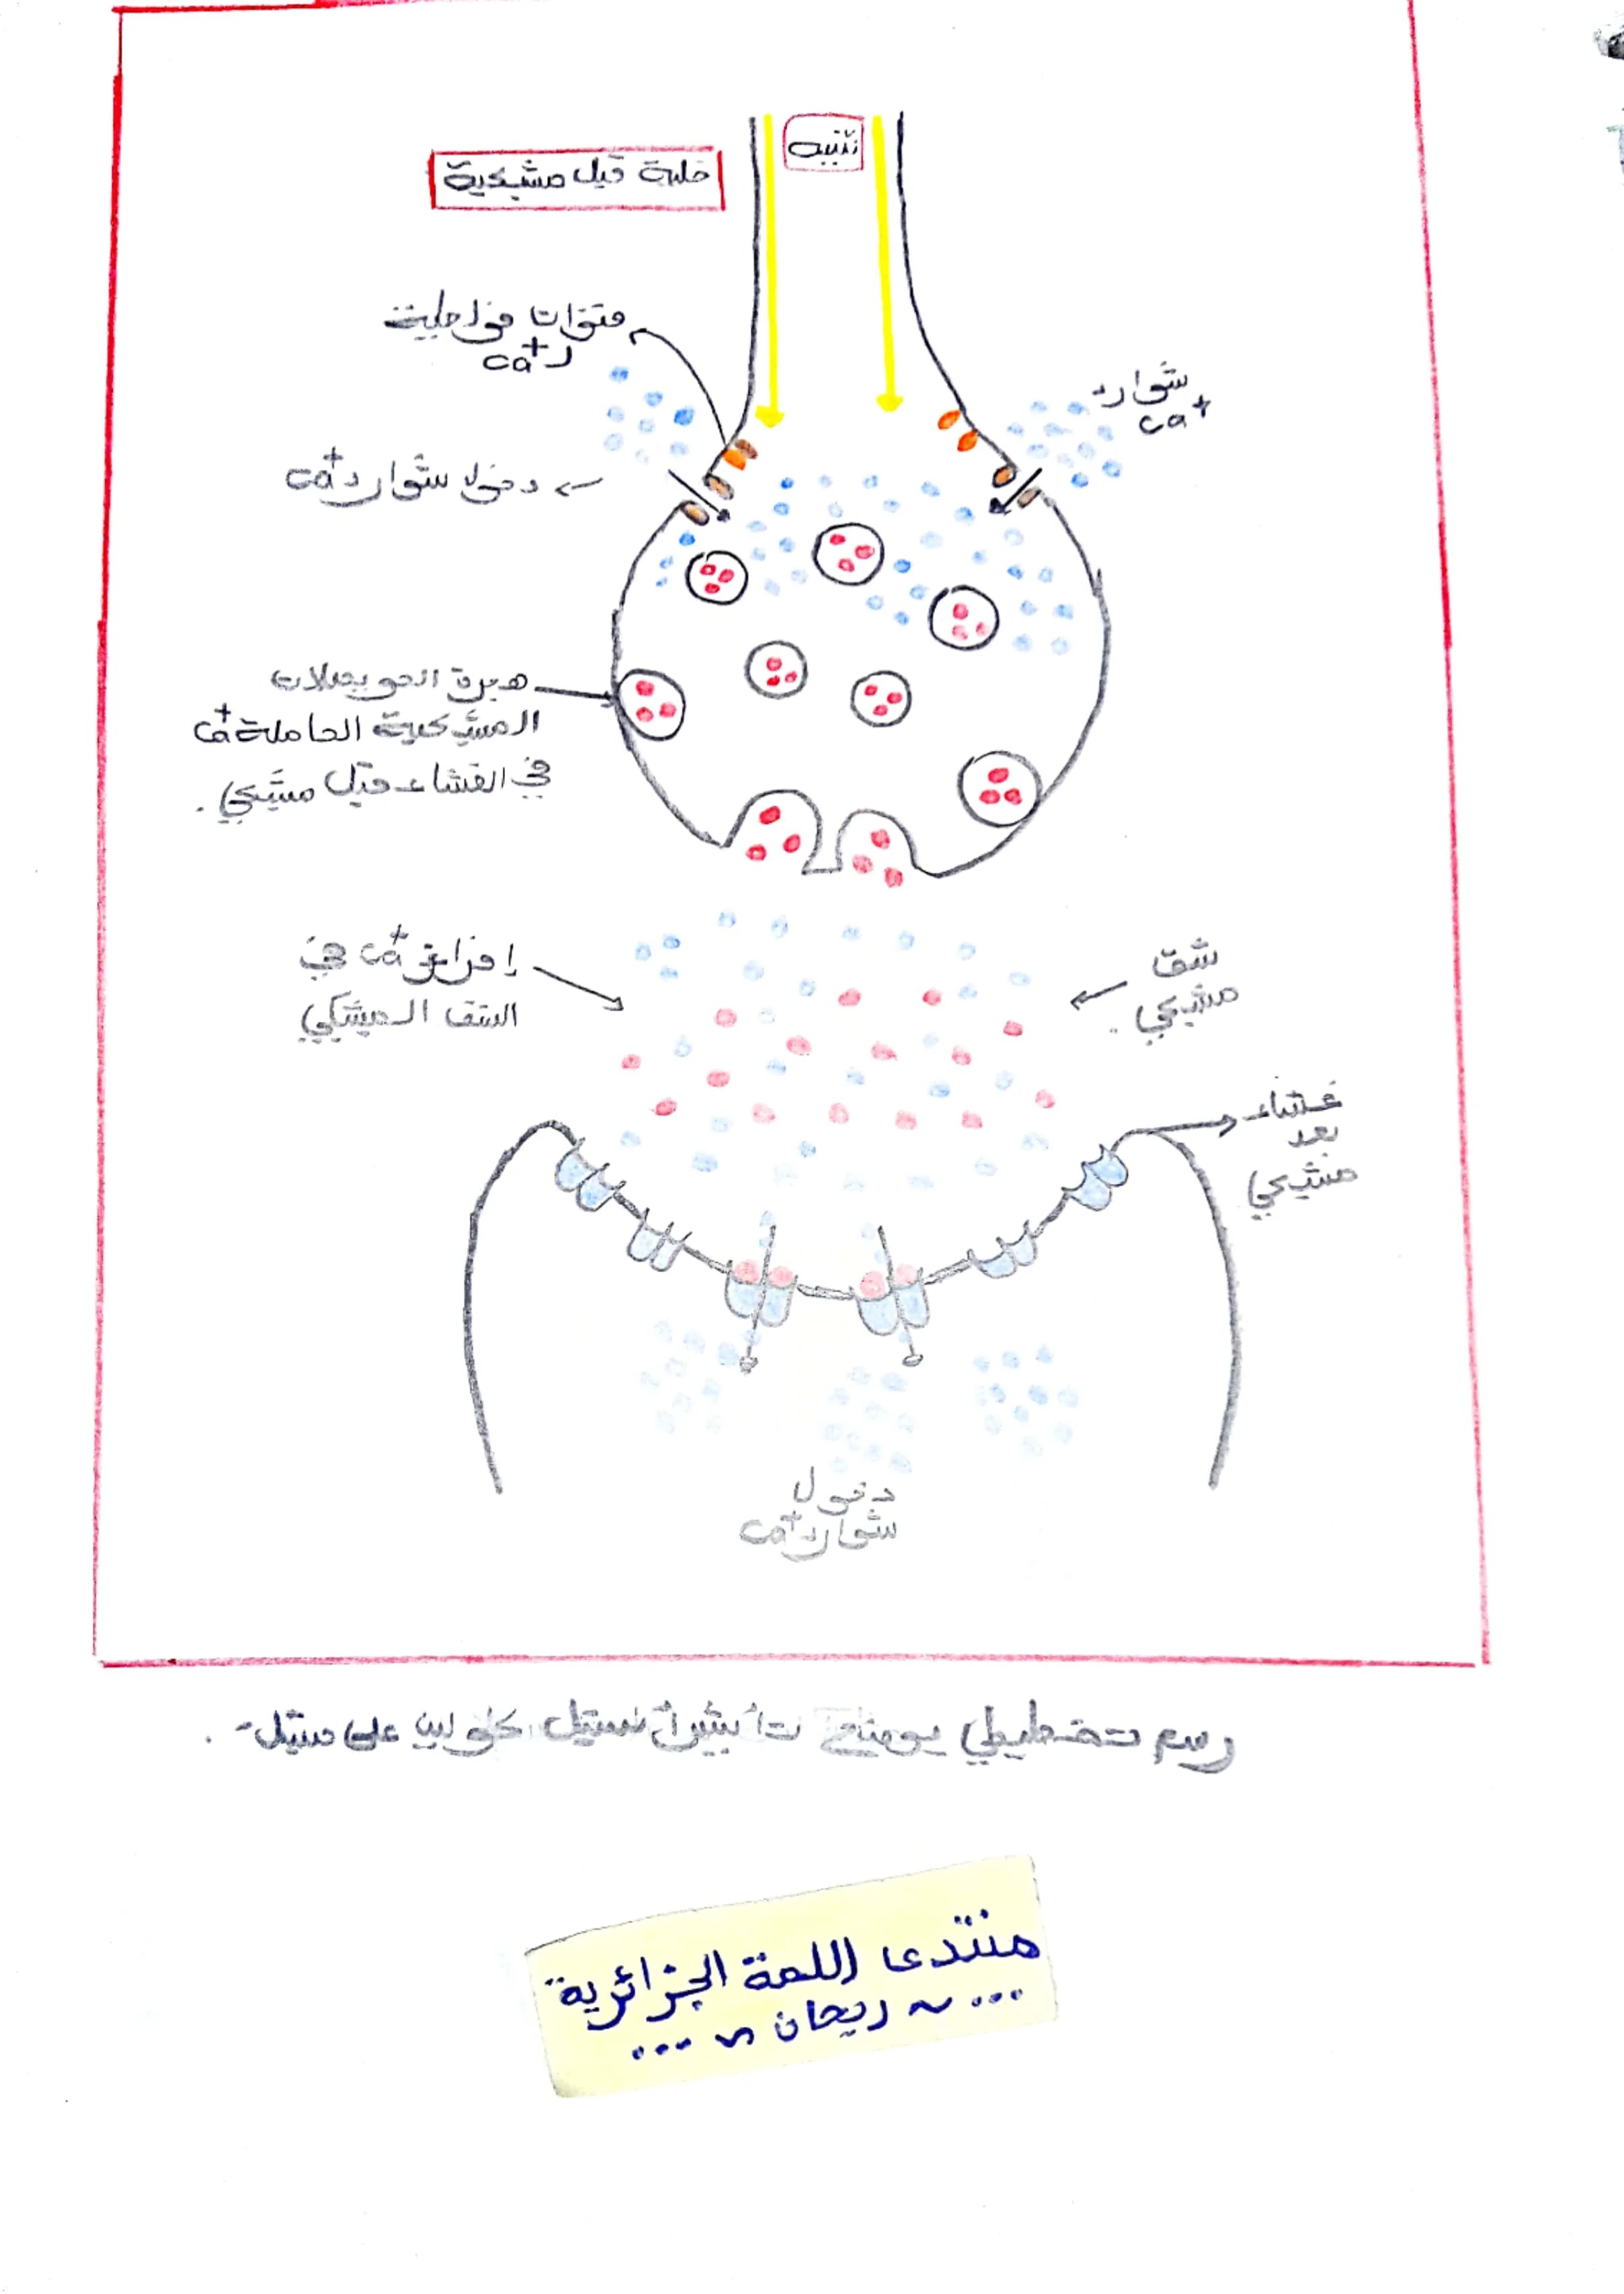 تنبيه
خلية قبل مشبكية
قنوات فولطية
لـ ca+
شوارد
ca+
دخول شوارد ca+
هجرة الحويصلات
المشبكية الحاملة ca+
في الغشاء قبل مشبكي.
إفراغ ca+ في
الشق المشبكي
شق
مشبكي.
غشاء
بعد
مشبكي
دخول
شوارد ca+
رسم تخطيطي يوضح تأثير أستيل كولين على
منتدى اللمة الجزائرية
... ~ ريحان ~ ...